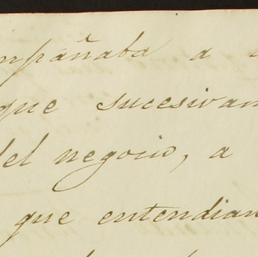 mpañaba a
que sucesivam
del negocio, a
que entendian